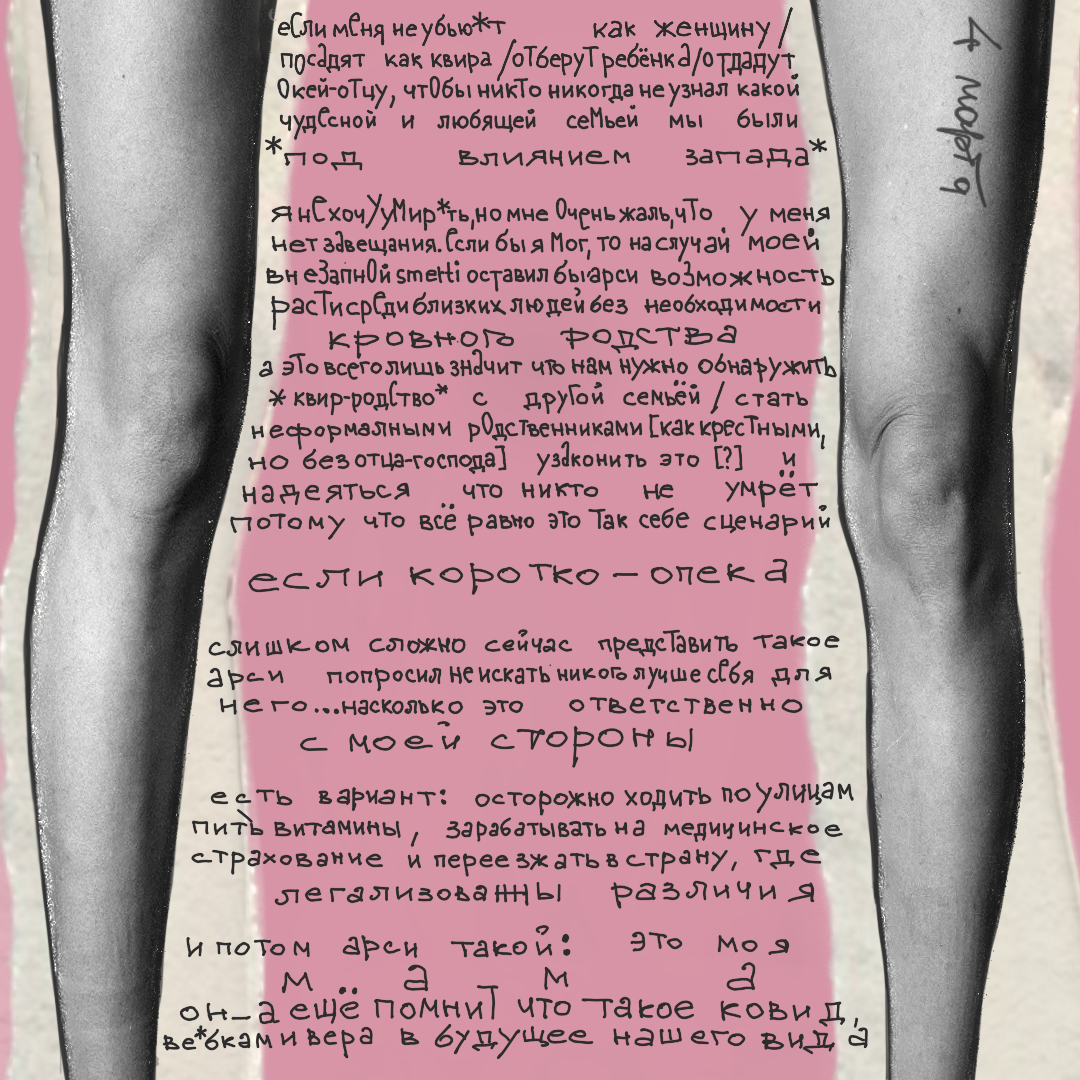 если меня не убью*т как женщину /
посадят как квира / отберут ребёнка / отдадут
Окей-отцу, чтобы никто никогда не узнал какой
чудесной и любящей семьей мы были
*под влиянием запада*
я не хочу умир*ть, но мне очень жаль, что у меня
нет завещания. если бы я мог, то на случай моей
внезапной smerti оставил бы арси возможность
расти среди близких людей без необходимости
кровного родства
а это всего лишь значит что нам нужно обнаружить
*квир-родство* с другой семьёй / стать
неформалными родственниками [как крестными,
но без отца-господа] узаконить это [?] и
надеяться что никто не умрёт
потому что всё равно это так себе сценарий
если коротко — опека
слишком сложно сейчас представить такое
арси попросил не искать никого лучше себя для
него...насколько это ответственно
с моей стороны
есть вариант: осторожно ходить по улицам
пить витамины, зарабатывать на медицинское
страхование и переезжать в страну, где
легализованны различия
и потом арси такой: это моя
мама
он_а ещё помнит что такое ковид,
ве*бкам и вера в будущее нашего вида
4 марта